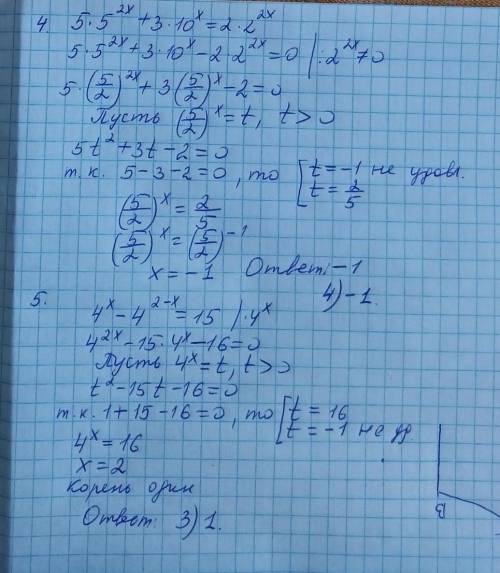 4. 5·5^{2x} + 3·10^x = 2·2^{2x}
5·5^{2x} + 3·10^x − 2·2^{2x} = 0 |: 2^{2x} ≠ 0
5·(5/2)^{2x} + 3(5/2)^x − 2 = 0
Пусть (5/2)^x = t, t > 0
5t² + 3t − 2 = 0
т.к. 5 − 3 − 2 = 0, то [t = −1 не удовл.
t = 2/5
(5/2)^x = 2/5
(5/2)^x = (5/2)^{−1}
x = −1 Ответ: −1
4) −1.
5. 4^x − 4^{2−x} = 15 |·4^x
4^{2x} − 15·4^x − 16 = 0
Пусть 4^x = t, t > 0
t² − 15t − 16 = 0
т.к. 1 + 15 − 16 = 0, то [t = 16
t = −1 не уд.
4^x = 16
x = 2
Корень один
Ответ: 3) 1.
В